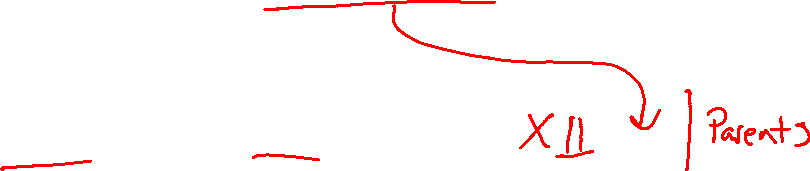 XII | Parents